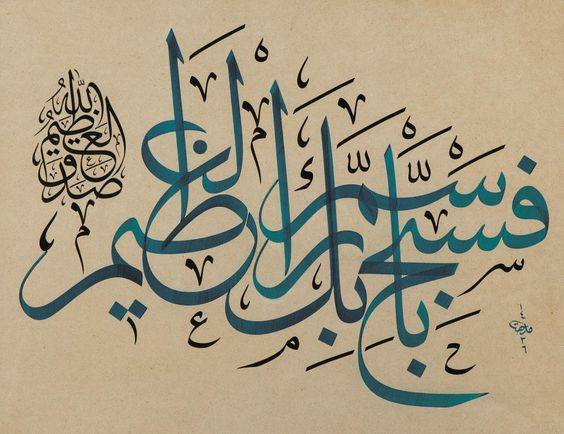 فسبح باسم ربك العظيم
صدق الله العظيم